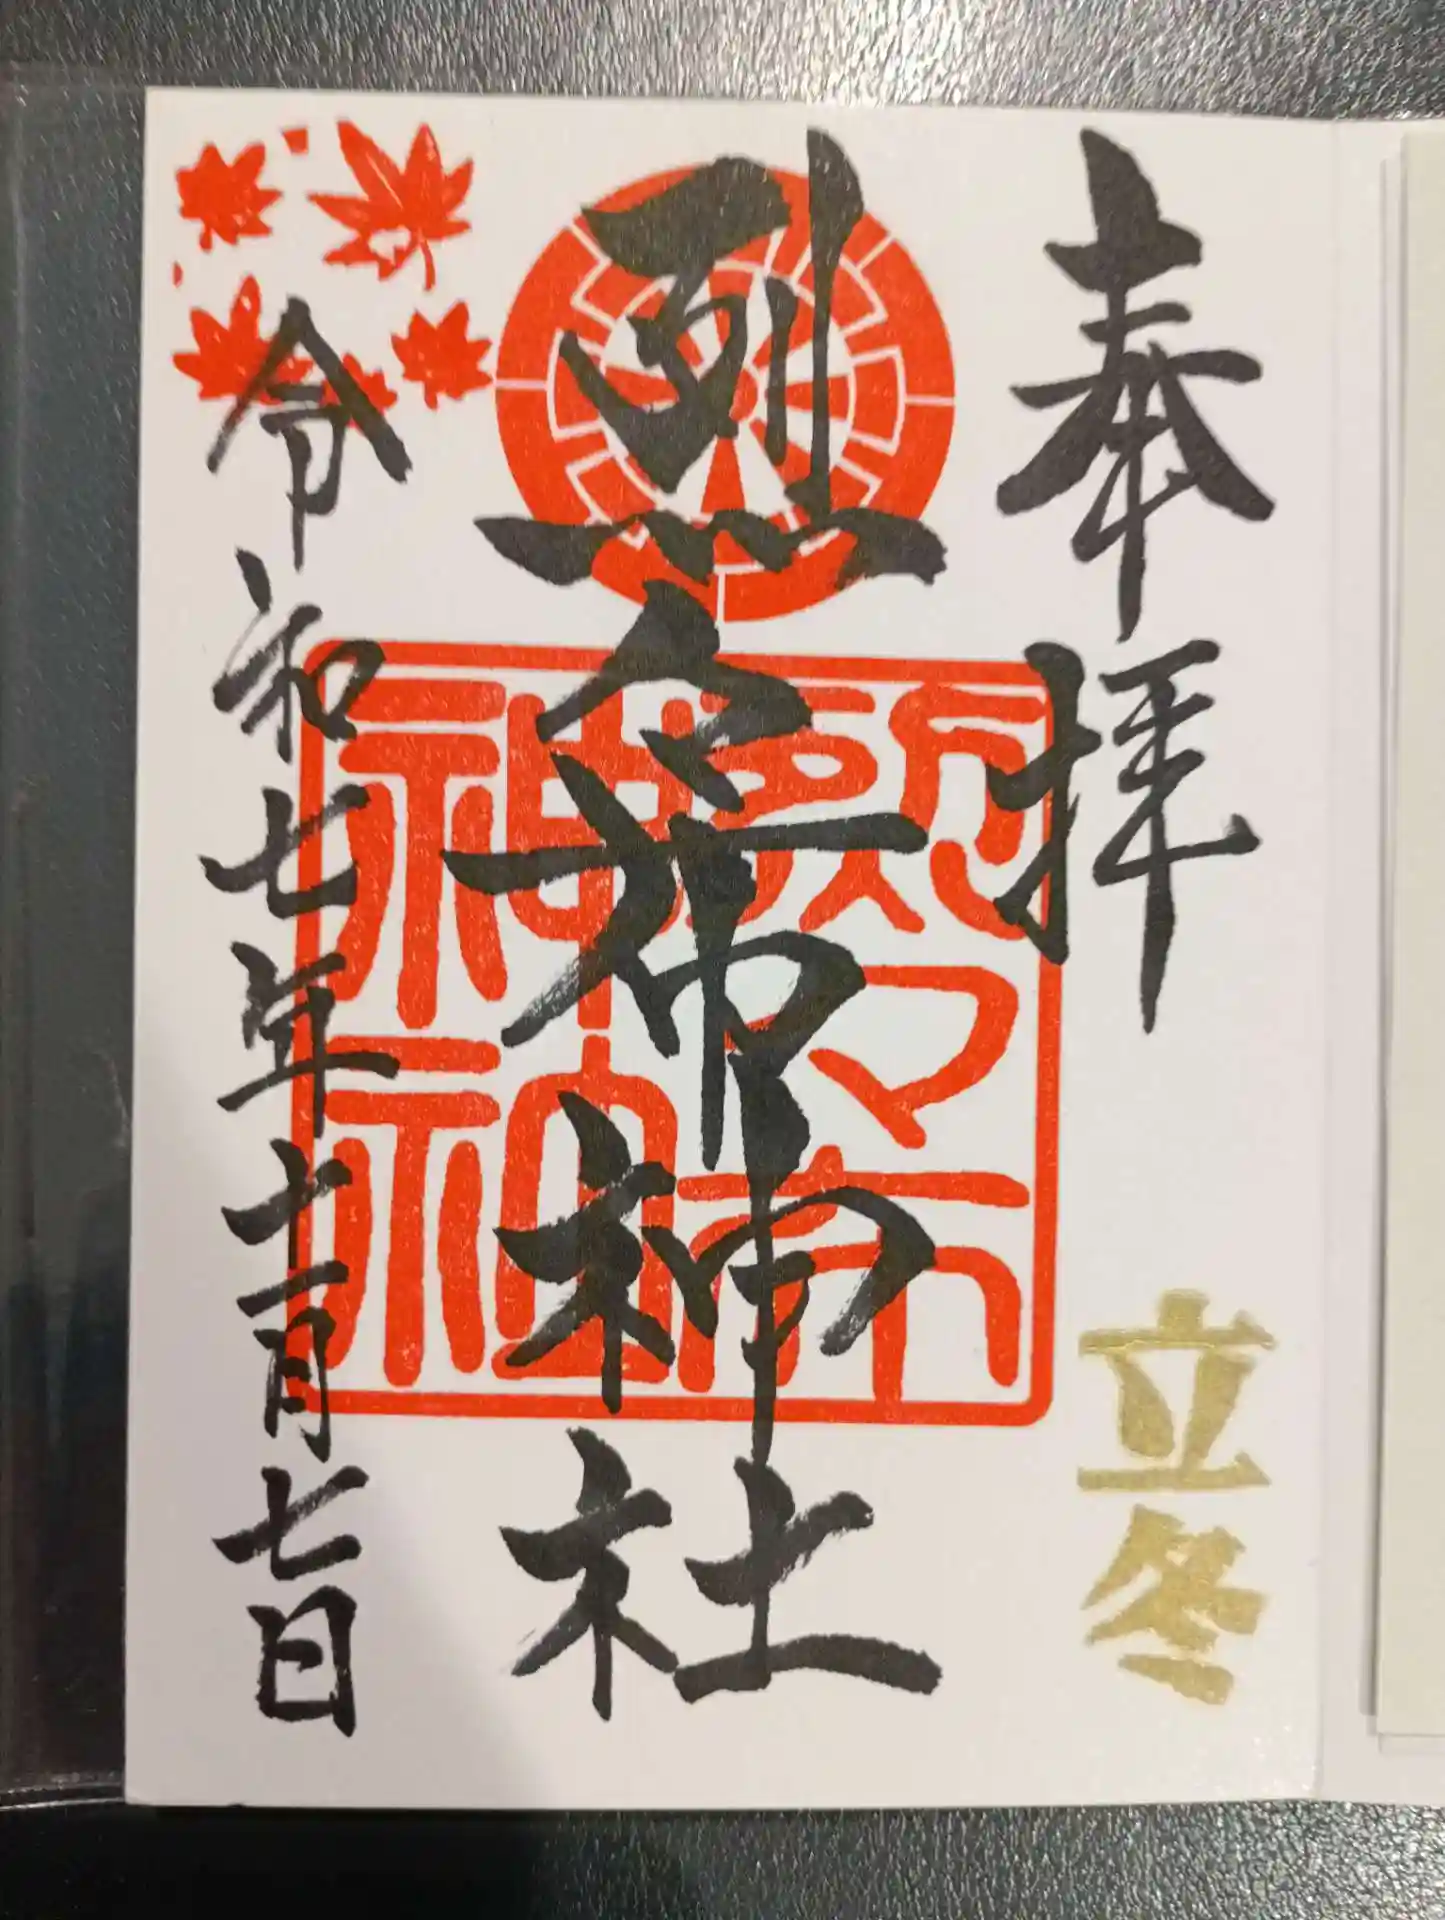 奉拝
立冬
烈々布神社
烈々布
神社
令和七年十一月七日